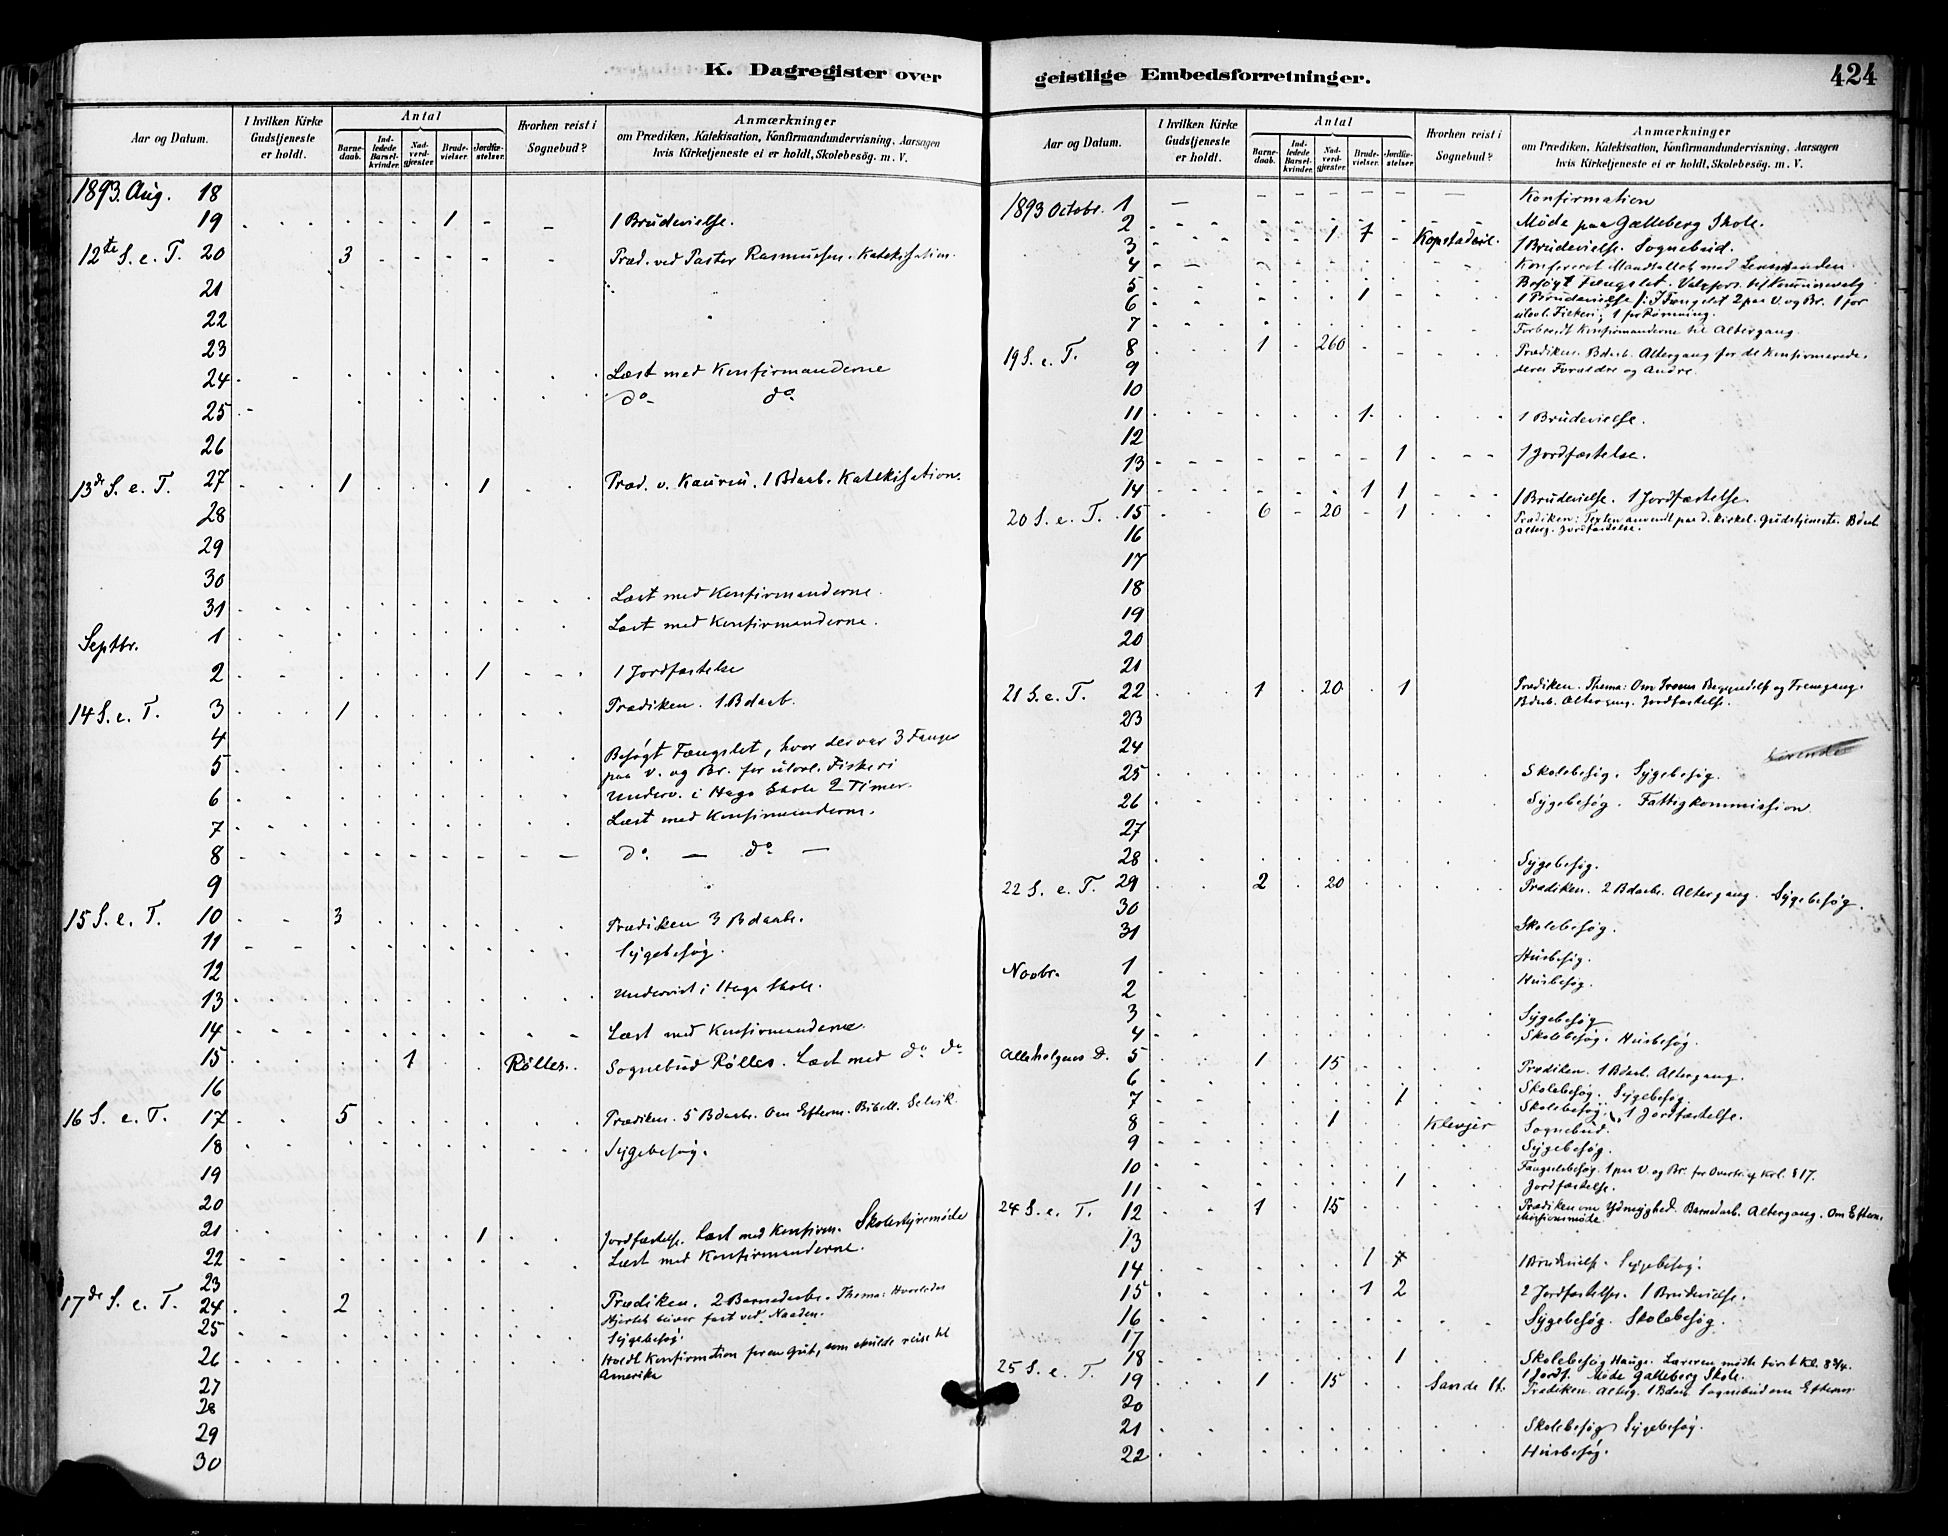 K. Dagregister over
Aar og Datum.
I hvilken Kirke Gudstjeneste er holdt.
Antal
Barnedaab.
Indledede Barselkvinder.
Nadverdgjester
Brudevielser.
Jordfæstelser.
Hvorhen reist i Sognebud?
Anmærkninger
om Prædiken, Katekisation, Konfirmandundervisning, Aarsagen
hvis Kirketjeneste ei er holdt, Skolebesög. m. V.
1893. Aug. 18
19 1 - - 1 Brudevielse.
12te S. e. T. 20 3 Præd. ved Pastor Rasmussen. Katekisation.
21
22
23
24 Læst med Konfirmanderne
25 do do
26
13de S. e. T. 27 1 1 Præd. v. Kaurin. 1 Bdaab. Katekisation.
28
29
30
31 Læst med Konfirmanderne
Septbr. 1 Læst med Konfirmanderne.
2 1 1 Jordfæstelse
14 S. e. T. 3 1 Prædiken. 1 Bdaab.
4
5 Besøgt Fængslet, hvor der var 3 Fanger
paa V. og Br. for ulovl. Fiskeri
6 Underv. i Haga Skole 2 Timer.
7 Læst med Konfirmanderne.
8 do — do —
9
15 S. e. T. 10 3 Prædiken 3 Bdaab.
11 Sygebesøg.
12
13 Undervist i Haga Skole.
14 Læst med Konfirmanderne.
15 1 Rølles. Sognebud Rølles. Læst med do do
16
16 S. e. T. 17 5 Prædiken. 5 Bdaab. Om Efterm. Bibell. Selvik.
18 Sygebesøg.
19
20
21 1 Jordfæstelse. Læst med Konfirm. Skolestyremøde
22 Læst med Konfirmanderne.
23
17de S. e. T. 24 2 Prædiken. 2 Barnedaab. Thema: Hvorledes
Hjertet bliver fast ved Naaden.
25 Sygebesøg.
26 Holdt Konfirmation for en Gut, som skulde reise til
Amerika
27
28
29
30
geistlige Embedsforretninger.
424
Aar og Datum.
I hvilken Kirke Gudstjeneste er holdt.
Antal
Barnedaab.
Indledede Barselkvinder.
Nadverdgjester.
Brudevielser.
Jordfæstelser.
Hvorhen reist i Sognebud?
Anmærkninger
om Prædiken, Katekisation, Konfirmandundervisning, Aarsagen
hvis Kirketjeneste ei er holdt, Skolebesög. m. V.
1893 Octobr. 1 — Konfirmation
2 Møde paa Galleberg Skole.
3 1 1 1 Brudevielse. Sognebud.
4 Konfereret Mandtallet med Lensmanden
5 Besøgt Fængslet.
6 1 1 Brudevielse /: I Fængslet 2 paa V. og Br. 1 for
ulovl. Fiskeri, 1 for Rømning.
7 Forberedt Konfirmanderne til Altergang.
19 S. e. T. 8 1 260 Prædiken. Bdaab. Altergang for de Konfirmerede,
9 deres Forældre og Andre.
10
11 1 1 Brudevielse.
12
13 1 1 Jordfæstelse.
14 1 1 1 Brudevielse. 1 Jordfæstelse.
20 S. e. T. 15 6 20 1 Prædiken: Texten anvendt paa d. kirkel. Gudstjeneste. Bdaab
Alterg. Jordfæstelse.
16
17
18
19
20
21
21 S. e. T. 22 1 20 1 Prædiken. Thema: Om Troens Begyndelse og Fremgang.
Bdaab. Altergang. Jordfæstelse.
23
24
25 Skolebesøg. Sygebesøg.
26 Sygebesøg. Fattigkommission
27
28 Sygebesøg.
22 S. e. T. 29 2 20 Prædiken. 2 Bdaab. Altergang. Sygebesøg.
30
31 Skolebesøg.
Novbr. 1 Husbesøg.
2 Husbesøg.
3 Sygebesøg
4 Skolebesøg. Husbesøg.
Allehelgens D. 5 1 15 Prædiken. 1 Bdaab. Altergang.
6 Skolebesøg. Sygebesøg.
7 1 Skolebesøg. 1 Jordfæstelse.
8 1 Klevjer Sognebud.
9 Sygebesøg.
10 Fængselsbesøg. 1 paa V. og Br. for Overtr. af Krl. § 17.
11 1 Jordfæstelse.
24 S. e. T. 12 1 15 Prædiken om Ydmyghed. Barnedaab. Altergang. Om Efterm.
Missionsmøde
13
14 1 1 Brudevielse. Sygebesøg.
15 1 2 2 Jordfæstelser. 1 Brudevielse.
16 Sygebesøg. Skolebesøg.
17
18 1 Skolebesøg Hauge. Læreren mødte først Kl. 8 3/4.
1 Jordf. Møde Galleberg Skole.
25 S. e. T. 19 1 15 Sande St. Prædiken. Alterg. 1 Bdaab. Sognebud om Efterm.
20
21 Skolebesøg Sygebesøg.
22 Husbesøg.